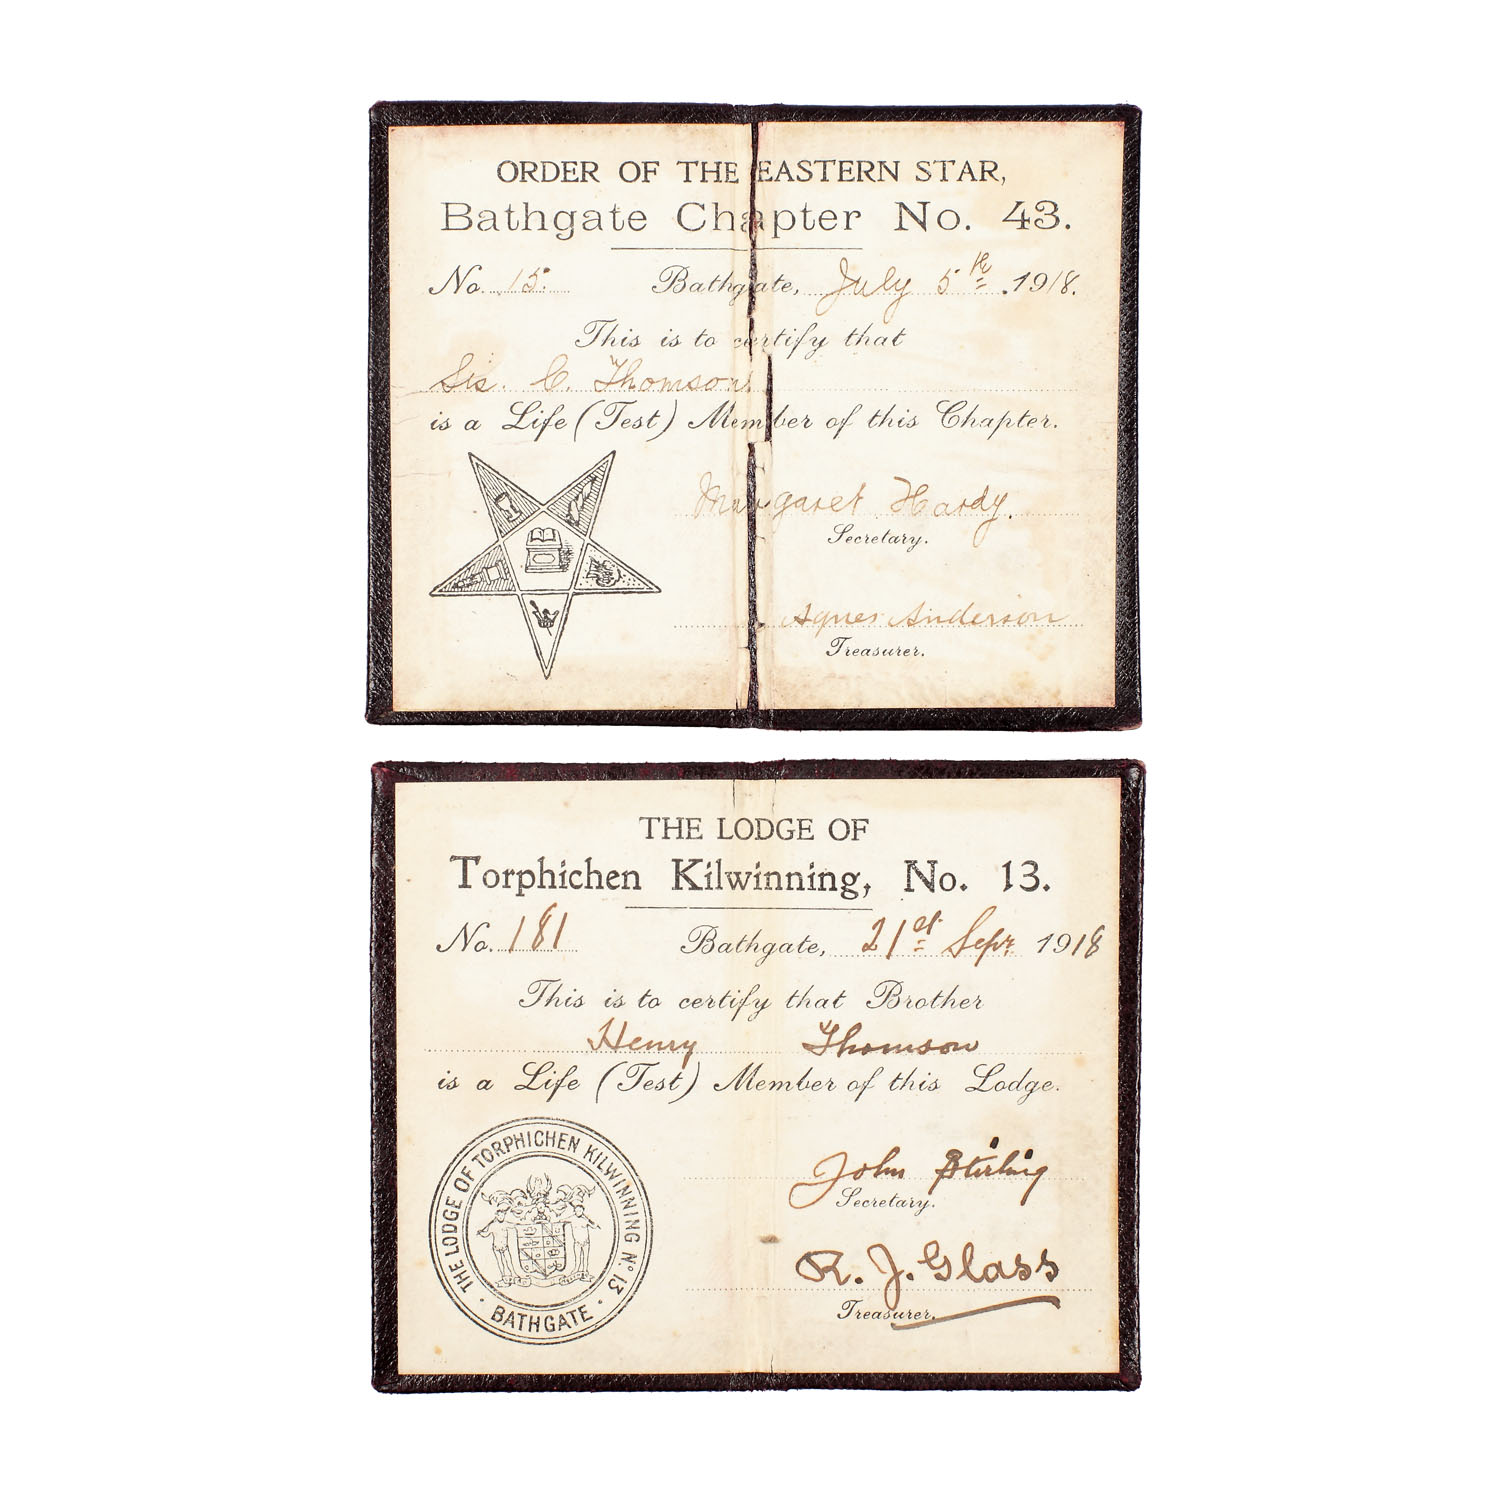 ORDER OF THE EASTERN STAR,
Bathgate Chapter No. 43.
No. 15. Bathgate, July 5th 1918.
This is to certify that
Sis. C. Thomson
is a Life (Test) Member of this Chapter.
Margaret Hardy.
Secretary.
Agnes Anderson
Treasurer.
THE LODGE OF
Torphichen Kilwinning, No. 13.
No. 181 Bathgate, 21st Sepr. 1918
This is to certify that Brother
Henry Thomson
is a Life (Test) Member of this Lodge.
John Stirling
Secretary.
R. J. Glass
Treasurer.
THE LODGE OF TORPHICHEN KILWINNING No 13
· BATHGATE ·